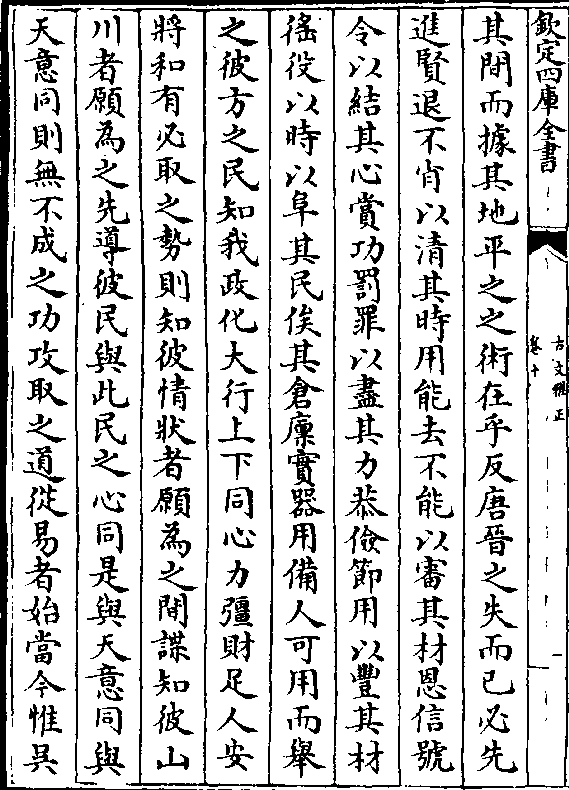 欽定四庫全書
古文雅正
卷十
其間而據其地平之之術在乎反唐晉之失而已必先
進賢退不肖以清其時用能去不能以審其材恩信號
令以結其心賞功罰罪以盡其力恭儉節用以豐其材
徭役以時以阜其民俟其倉廩實器用備人可用而舉
之彼方之民知我政化大行上下同心力彊財足人安
將和有必取之勢則知彼情狀者願為之間諜知彼山
川者願為之先導彼民與此民之心同是與天意同與
天意同則無不成之功攻取之道從易者始當今惟吳